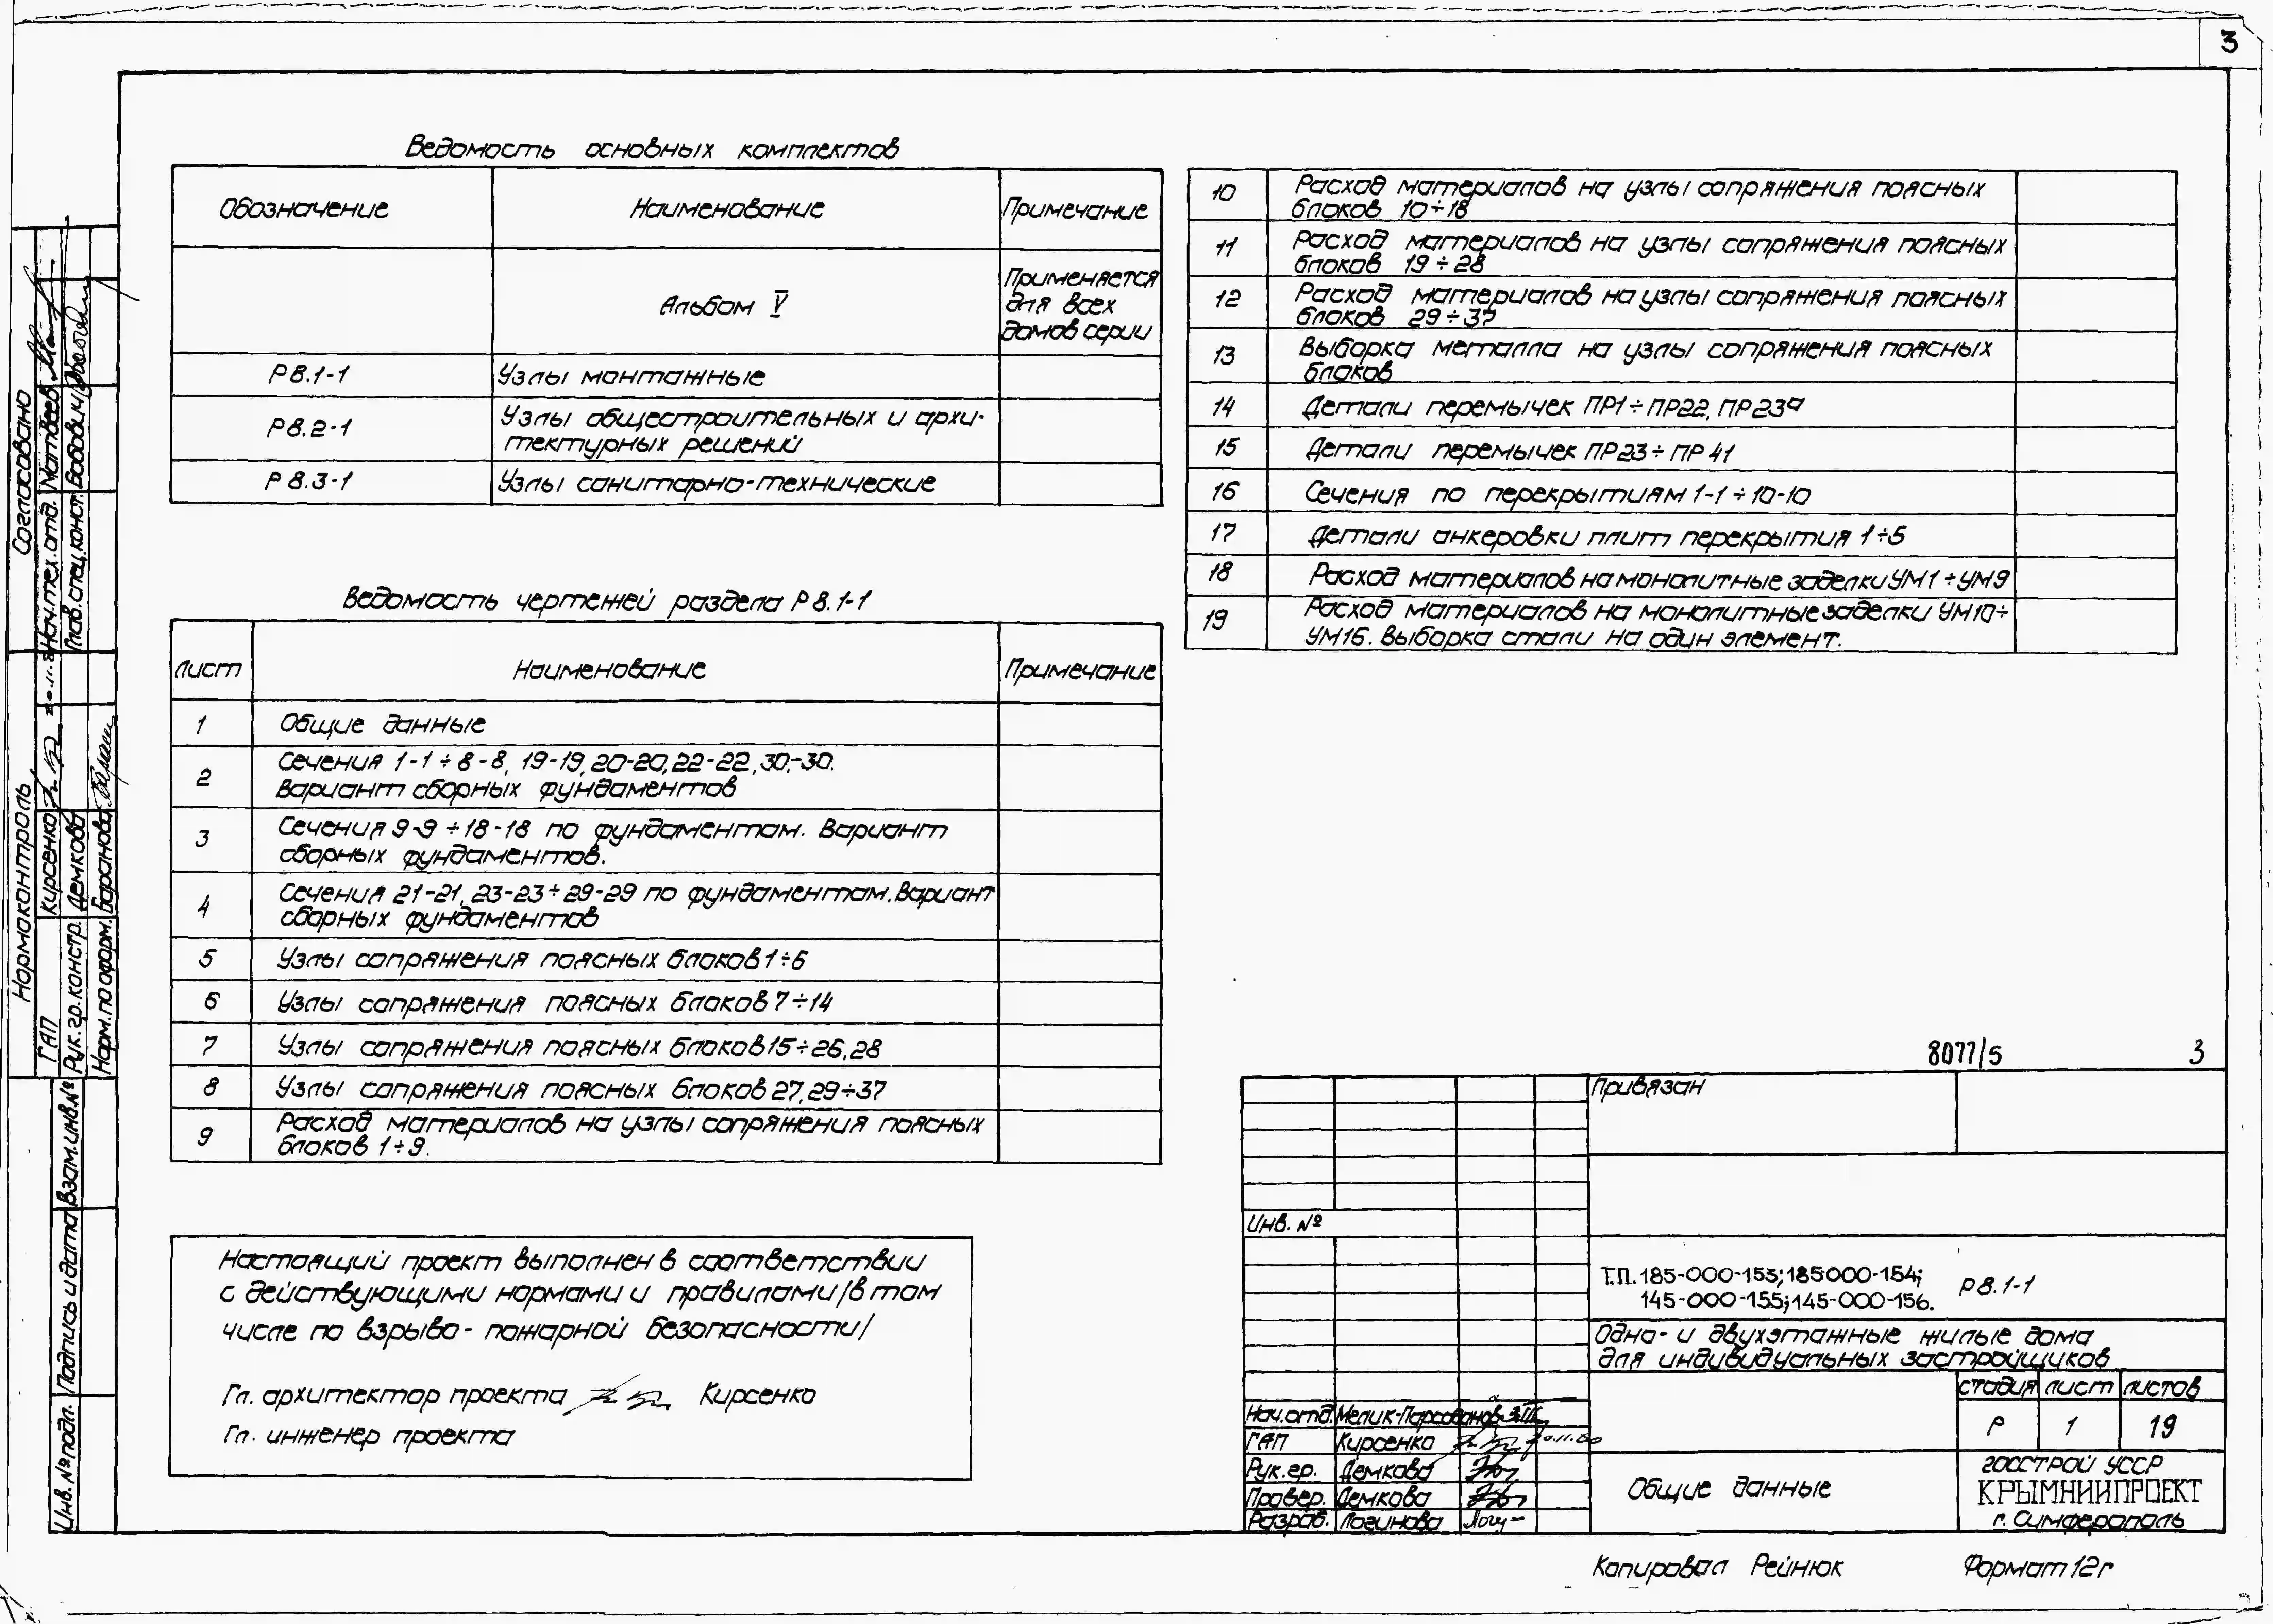 3
Ведомость основных комплектов
Обозначение Наименование Примечание
Альбом V Применяется для всех домов серии
Р 8.1-1 Узлы монтажные
Р 8.2-1 Узлы общестроительных и архи-
тектурных решений
Р 8.3-1 Узлы санитарно-технические
Ведомость чертежей раздела Р 8.1-1
Лист Наименование Примечание
1 Общие данные
2 Сечения 1-1÷8-8, 19-19, 20-20, 22-22, 30-30.
Вариант сборных фундаментов
3 Сечения 9-9÷18-18 по фундаментам. Вариант
сборных фундаментов.
4 Сечения 21-21, 23-23÷29-29 по фундаментам. Вариант
сборных фундаментов
5 Узлы сопряжения поясных блоков 1÷6
6 Узлы сопряжения поясных блоков 7÷14
7 Узлы сопряжения поясных блоков 15÷26, 28
8 Узлы сопряжения поясных блоков 27, 29÷37
9 Расход материалов на узлы сопряжения поясных
блоков 1÷9.
10 Расход материалов на узлы сопряжения поясных
блоков 10÷18
11 Расход материалов на узлы сопряжения поясных
блоков 19÷28
12 Расход материалов на узлы сопряжения поясных
блоков 29÷37
13 Выборка металла на узлы сопряжения поясных
блоков
14 Детали перемычек ПР1÷ПР22, ПР23а
15 Детали перемычек ПР23÷ПР41
16 Сечения по перекрытиям 1-1÷10-10
17 Детали анкеровки плит перекрытия 1÷5
18 Расход материалов на монолитные заделки УМ1÷УМ9
19 Расход материалов на монолитные заделки УМ10÷
УМ16. Выборка стали на один элемент.
Настоящий проект выполнен в соответствии
с действующими нормами и правилами /в том
числе по взрыво-пожарной безопасности/
Гл. архитектор проекта Кирсенко
Гл. инженер проекта
8077/5 3
Привязан
Инв. №
Т.П. 185-000-153; 185-000-154;
145-000-155; 145-000-156.
Р 8.1-1
Одно- и двухэтажные жилые дома
для индивидуальных застройщиков
стадия лист листов
Р 1 19
Нач.отд.
ГАП Кирсенко 20.11.80
Рук.гр. Демкова
Провер. Демкова
Разраб. Логинова
Общие данные
Госстрой УССР
КРЫМНИИПРОЕКТ
г. Симферополь
Копировал Рейнюк Формат 12г
Согласовано
Нач.тех.отд. Матвеев
Глав.спец.конст. Бабович
Нормоконтроль
ГАП Кирсенко
Рук.гр.констр. Демкова
Норм.по оформ. Баранова
Взам.инв.№
Подпись и дата
Инв.№ подл.